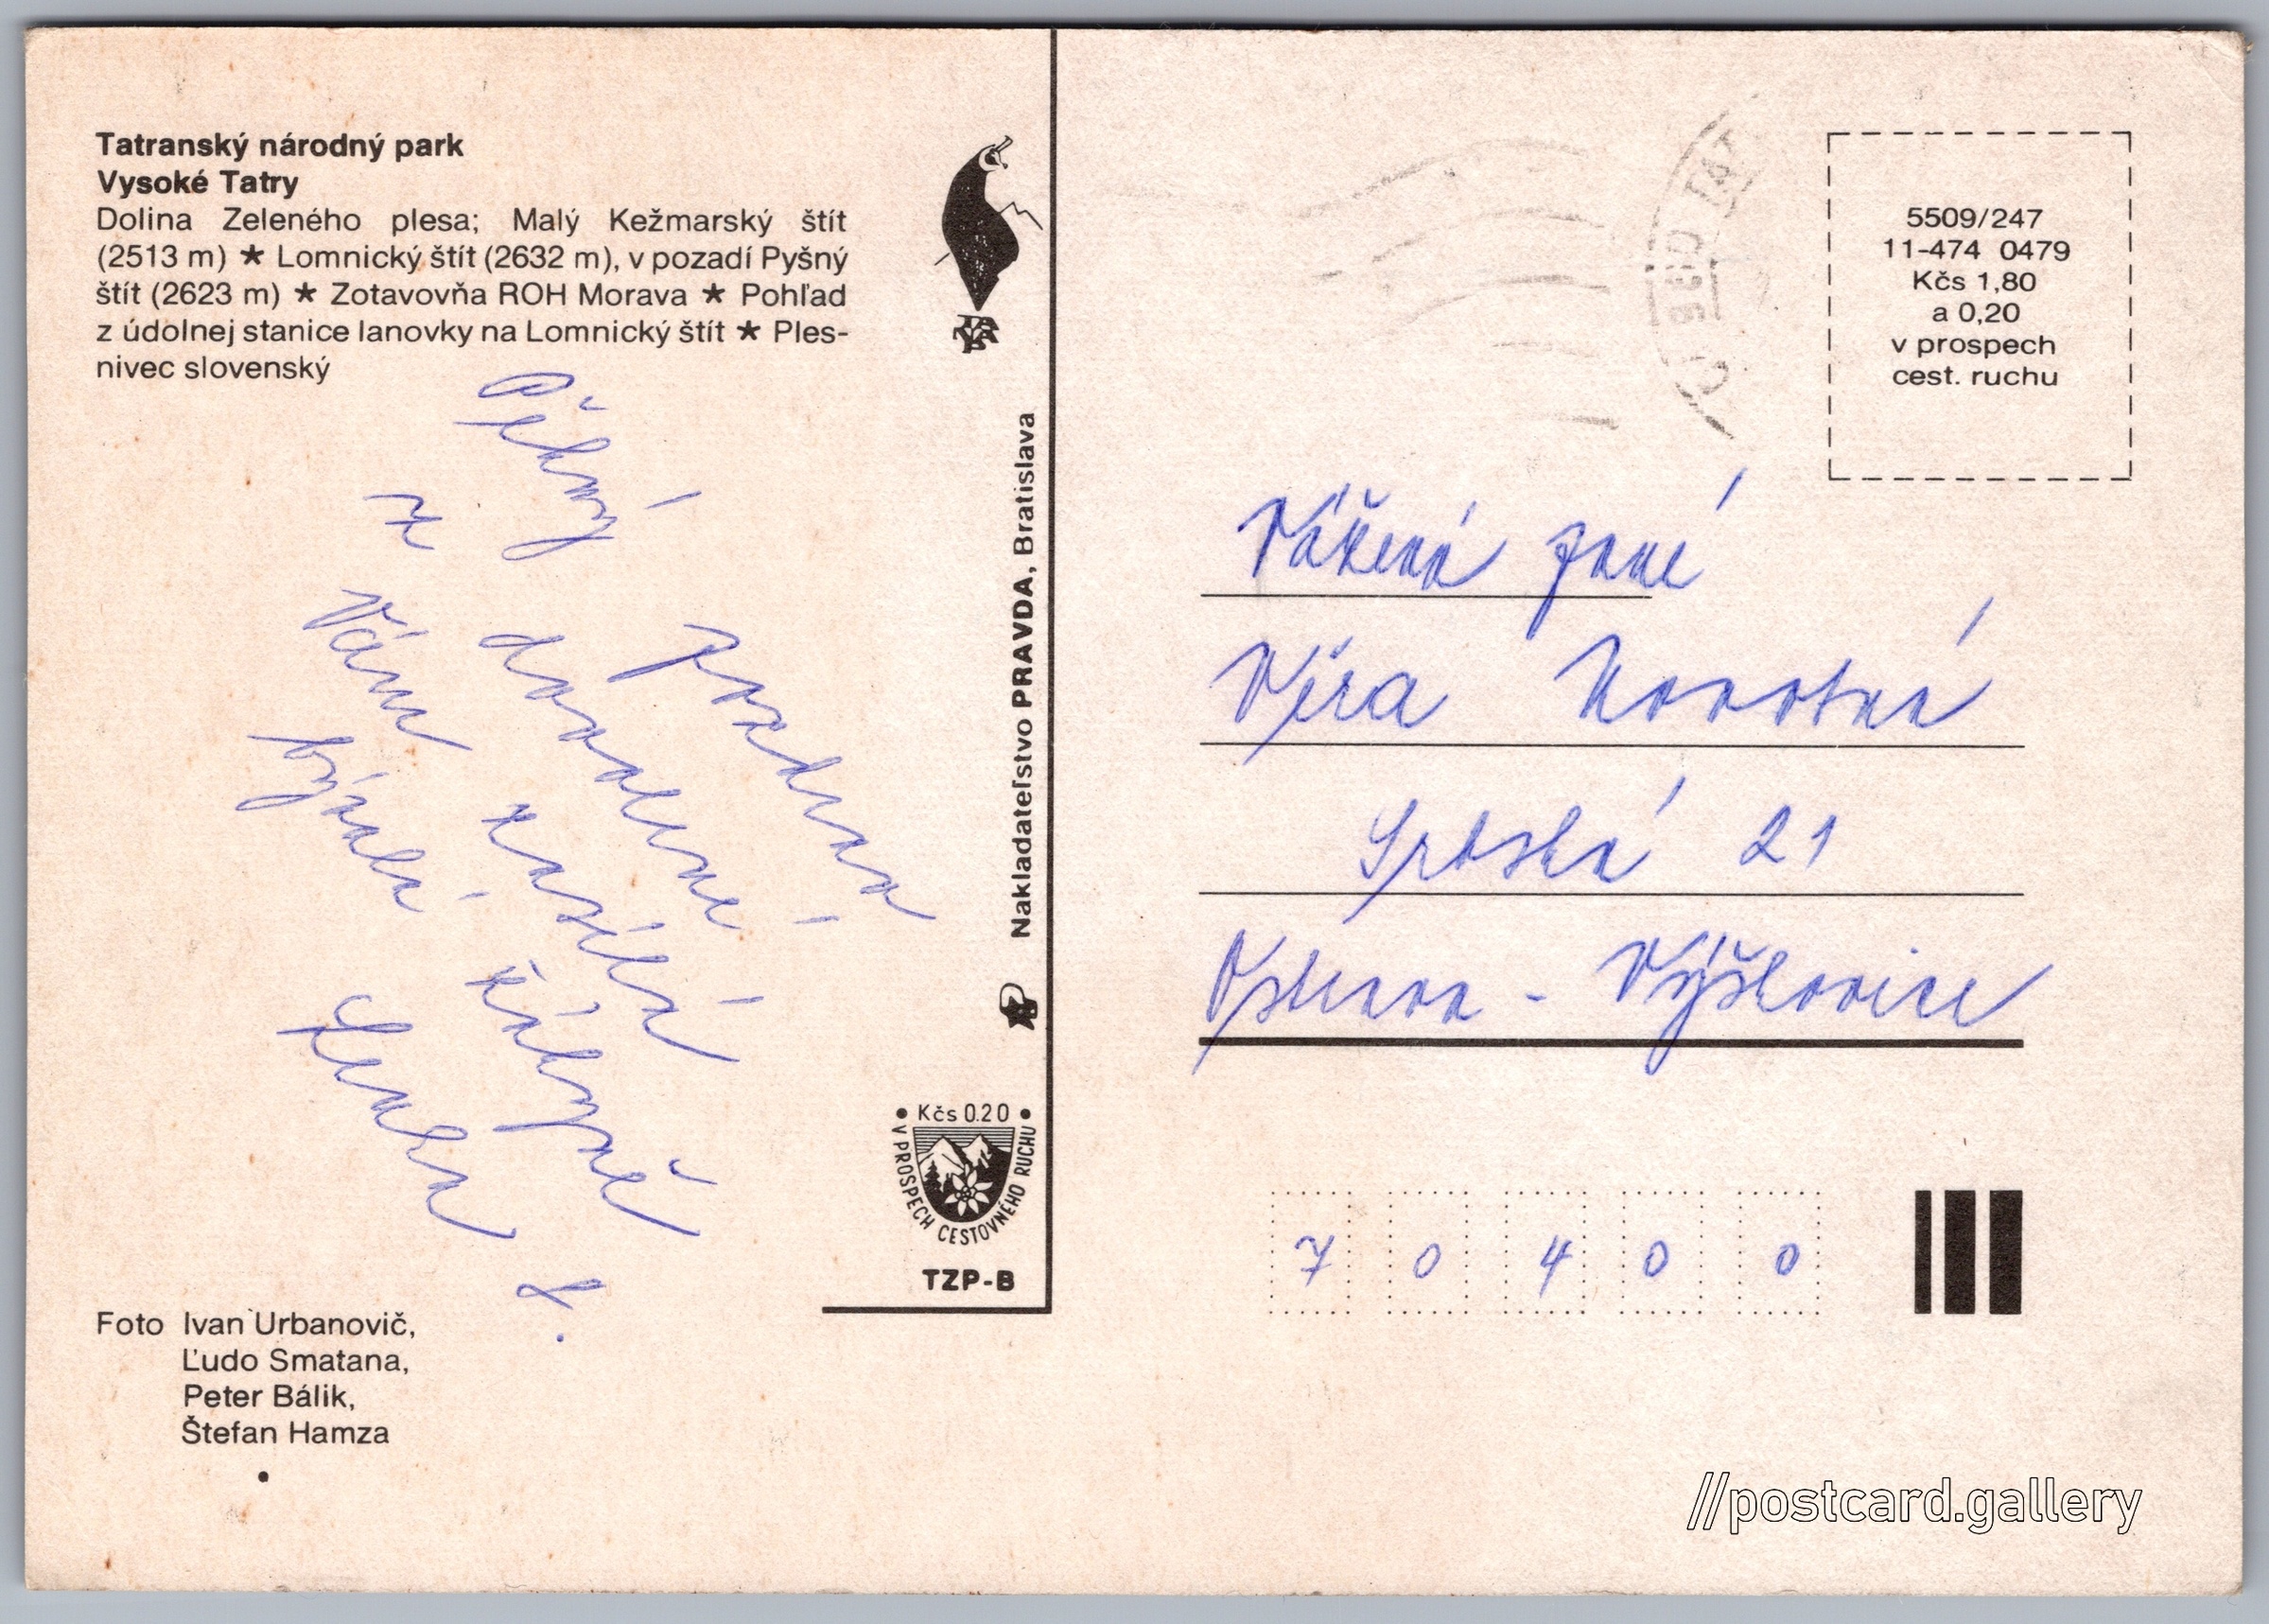 Tatranský národný park
Vysoké Tatry
Dolina Zeleného plesa; Malý Kežmarský štít
(2513 m) ★ Lomnický štít (2632 m), v pozadí Pyšný
štít (2623 m) ★ Zotavovňa ROH Morava ★ Pohľad
z údolnej stanice lanovky na Lomnický štít ★ Ples-
nivec slovenský
Pěkný pozdrav
z dovolené
Vám zasílá
bývalá
Lenka L.
Foto Ivan Urbanovič,
Ľudo Smatana,
Peter Bálik,
Štefan Hamza
Nakladateľstvo PRAVDA, Bratislava
• Kčs 0.20 •
V PROSPECH CESTOVNÉHO RUCHU
TZP-B
5509/247
11-474 0479
Kčs 1,80
a 0,20
v prospech
cest. ruchu
Vážená paní
Věra Novotná
Srbská 21
Ostrava - Výškovice
7 0 4 0 0
//postcard.gallery